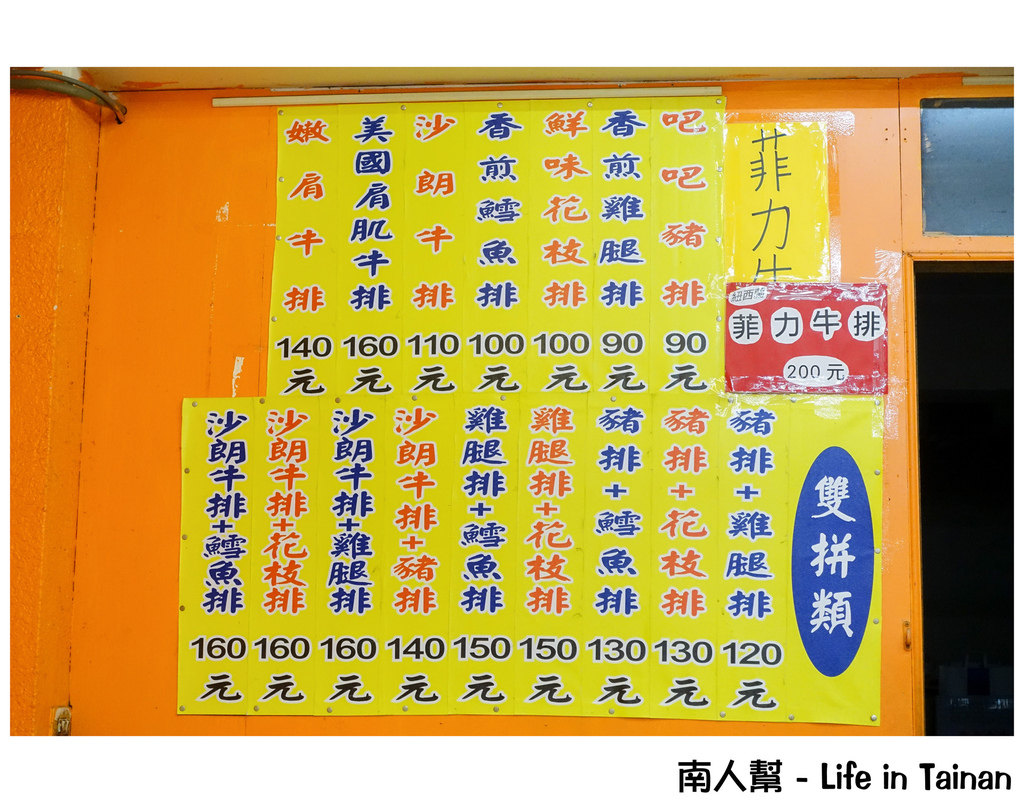 菲力牛
紐西蘭
菲力牛排
200元
吧吧豬排
90元
香煎雞腿排
90元
鮮味花枝排
100元
香煎鱈魚排
100元
沙朗牛排
110元
美國肩肌牛排
160元
嫩肩牛排
140元
雙拼類
豬排+雞腿排
120元
豬排+花枝排
130元
豬排+鱈魚排
130元
雞腿排+花枝排
150元
雞腿排+鱈魚排
150元
沙朗牛排+豬排
140元
沙朗牛排+雞腿排
160元
沙朗牛排+花枝排
160元
沙朗牛排+鱈魚排
160元
南人幫 - Life in Tainan